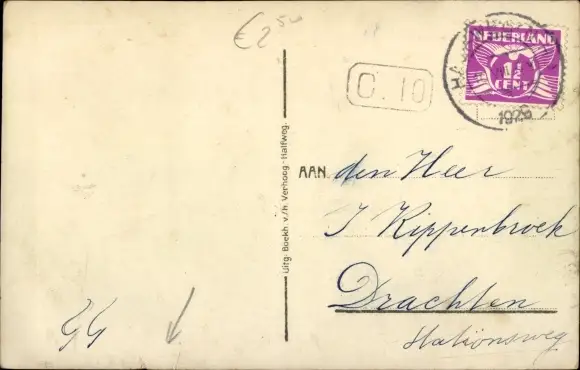 €2.50
NEDERLAND
1½
CENT
1926
C. 10
AAN den Heer
J Kippenbroek
Drachten
Stationsweg
Uitg. Boekh. v./h. Verhoog - Halfweg.